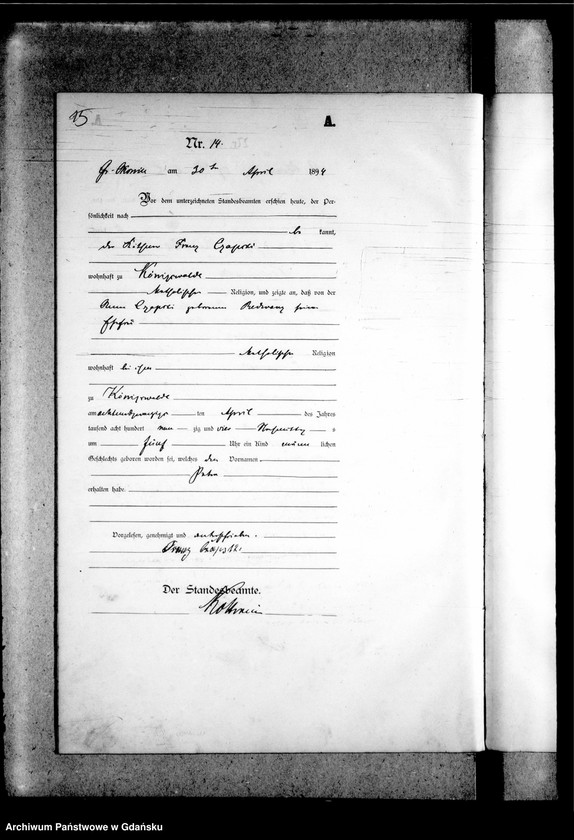 15
A.
Nr. 14.
am 30 ten April 1894
Vor dem unterzeichneten Standesbeamten erschien heute, der Per-
sönlichkeit nach
be kannt,
der Franz Czapski
wohnhaft zu Königswalde
katholischer Religion, und zeigte an, daß von der
Anna Czapski geborenen seiner
Ehefrau
katholischer Religion
wohnhaft bei ihm
zu Königswalde
am achtundzwanzigsten April des Jahres
tausend acht hundert neun zig und vier Nachmittags
um fünf Uhr ein Kind männ lichen
Geschlechts geboren worden sei, welches den Vornamen
erhalten habe.
Vorgelesen, genehmigt und unterschrieben.
Franz Czapski
Der Standesbeamte.